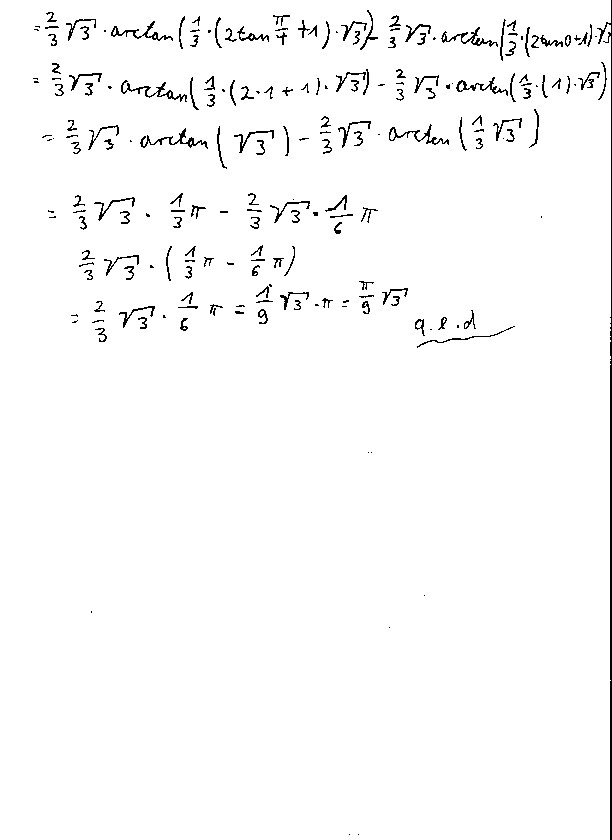 = 2/3 √3 · arctan(1/3 · (2tan π/4 + 1) · √3) - 2/3 √3 · arctan(1/3 · (2tan0+1) √3
= 2/3 √3 · arctan(1/3 · (2 · 1 + 1) · √3) - 2/3 √3 · arctan(1/3 · (1) · √3)
= 2/3 √3 · arctan(√3) - 2/3 √3 · arctan(1/3 √3)
= 2/3 √3 · 1/3 π - 2/3 √3 · 1/6 π
2/3 √3 · (1/3 π - 1/6 π)
= 2/3 √3 · 1/6 π = 1/9 √3 · π = π/9 √3
q.e.d